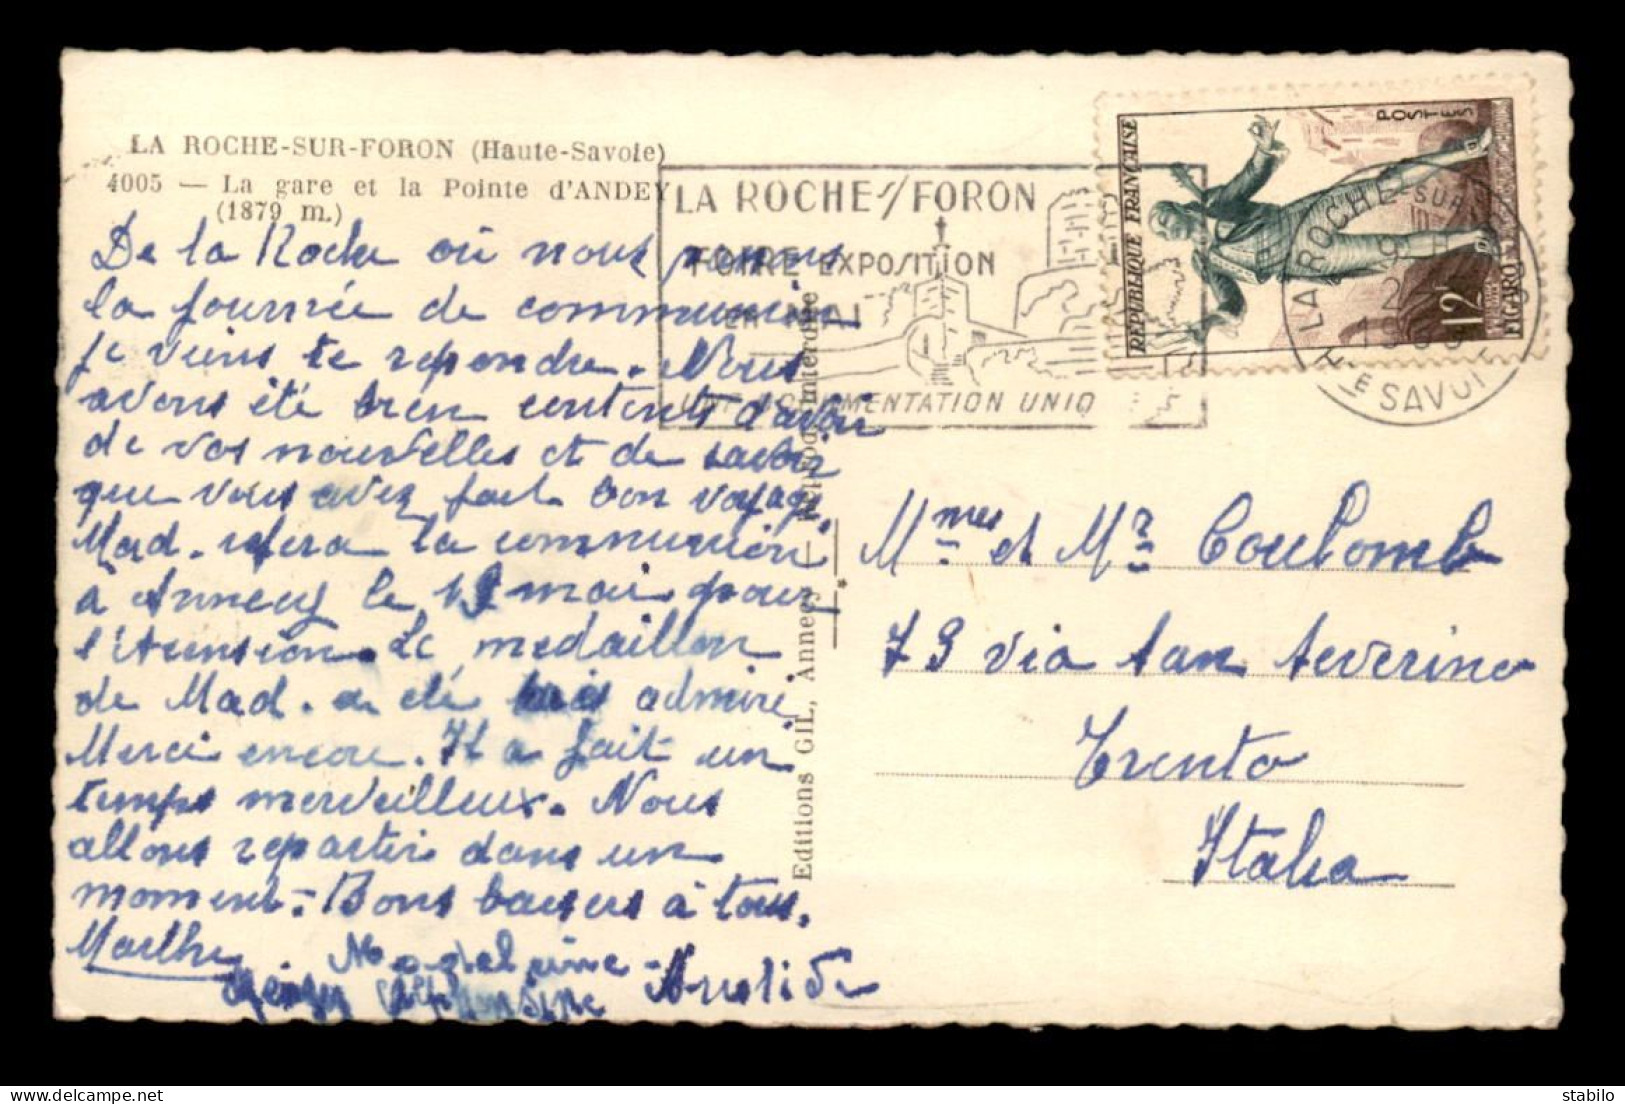 LA ROCHE-SUR-FORON (Haute-Savoie)
4005 — La gare et la Pointe d'ANDEY
(1879 m.)
De la Roche où nous
la journée de communion
je viens te repondre. Nous
avons été bien contents d'avoir
de vos nouvelles et de savoir
que vous avez fait bon voyage.
Mad. refera la communion
à Annecy le 19 mai pour
l'Ascension. Le medaillon
de Mad. a été admiré
Merci encore. Il a fait un
temps merveilleux. Nous
allons repartir dans un
moment. Bons baisers à tous.
Marthe
Madeleine
Alphonsine
Editions GIL, Annecy — interdite
LA ROCHE S/FORON
FOIRE EXPOSITION
EN MAI
DOCUMENTATION UNIQ
REPUBLIQUE FRANÇAISE
POSTES
12
FIGARO
LA ROCHE-SUR-
HTE SAVOIE
Mmes et Mr Coulomb
73 via San Severino
Trento
Italia